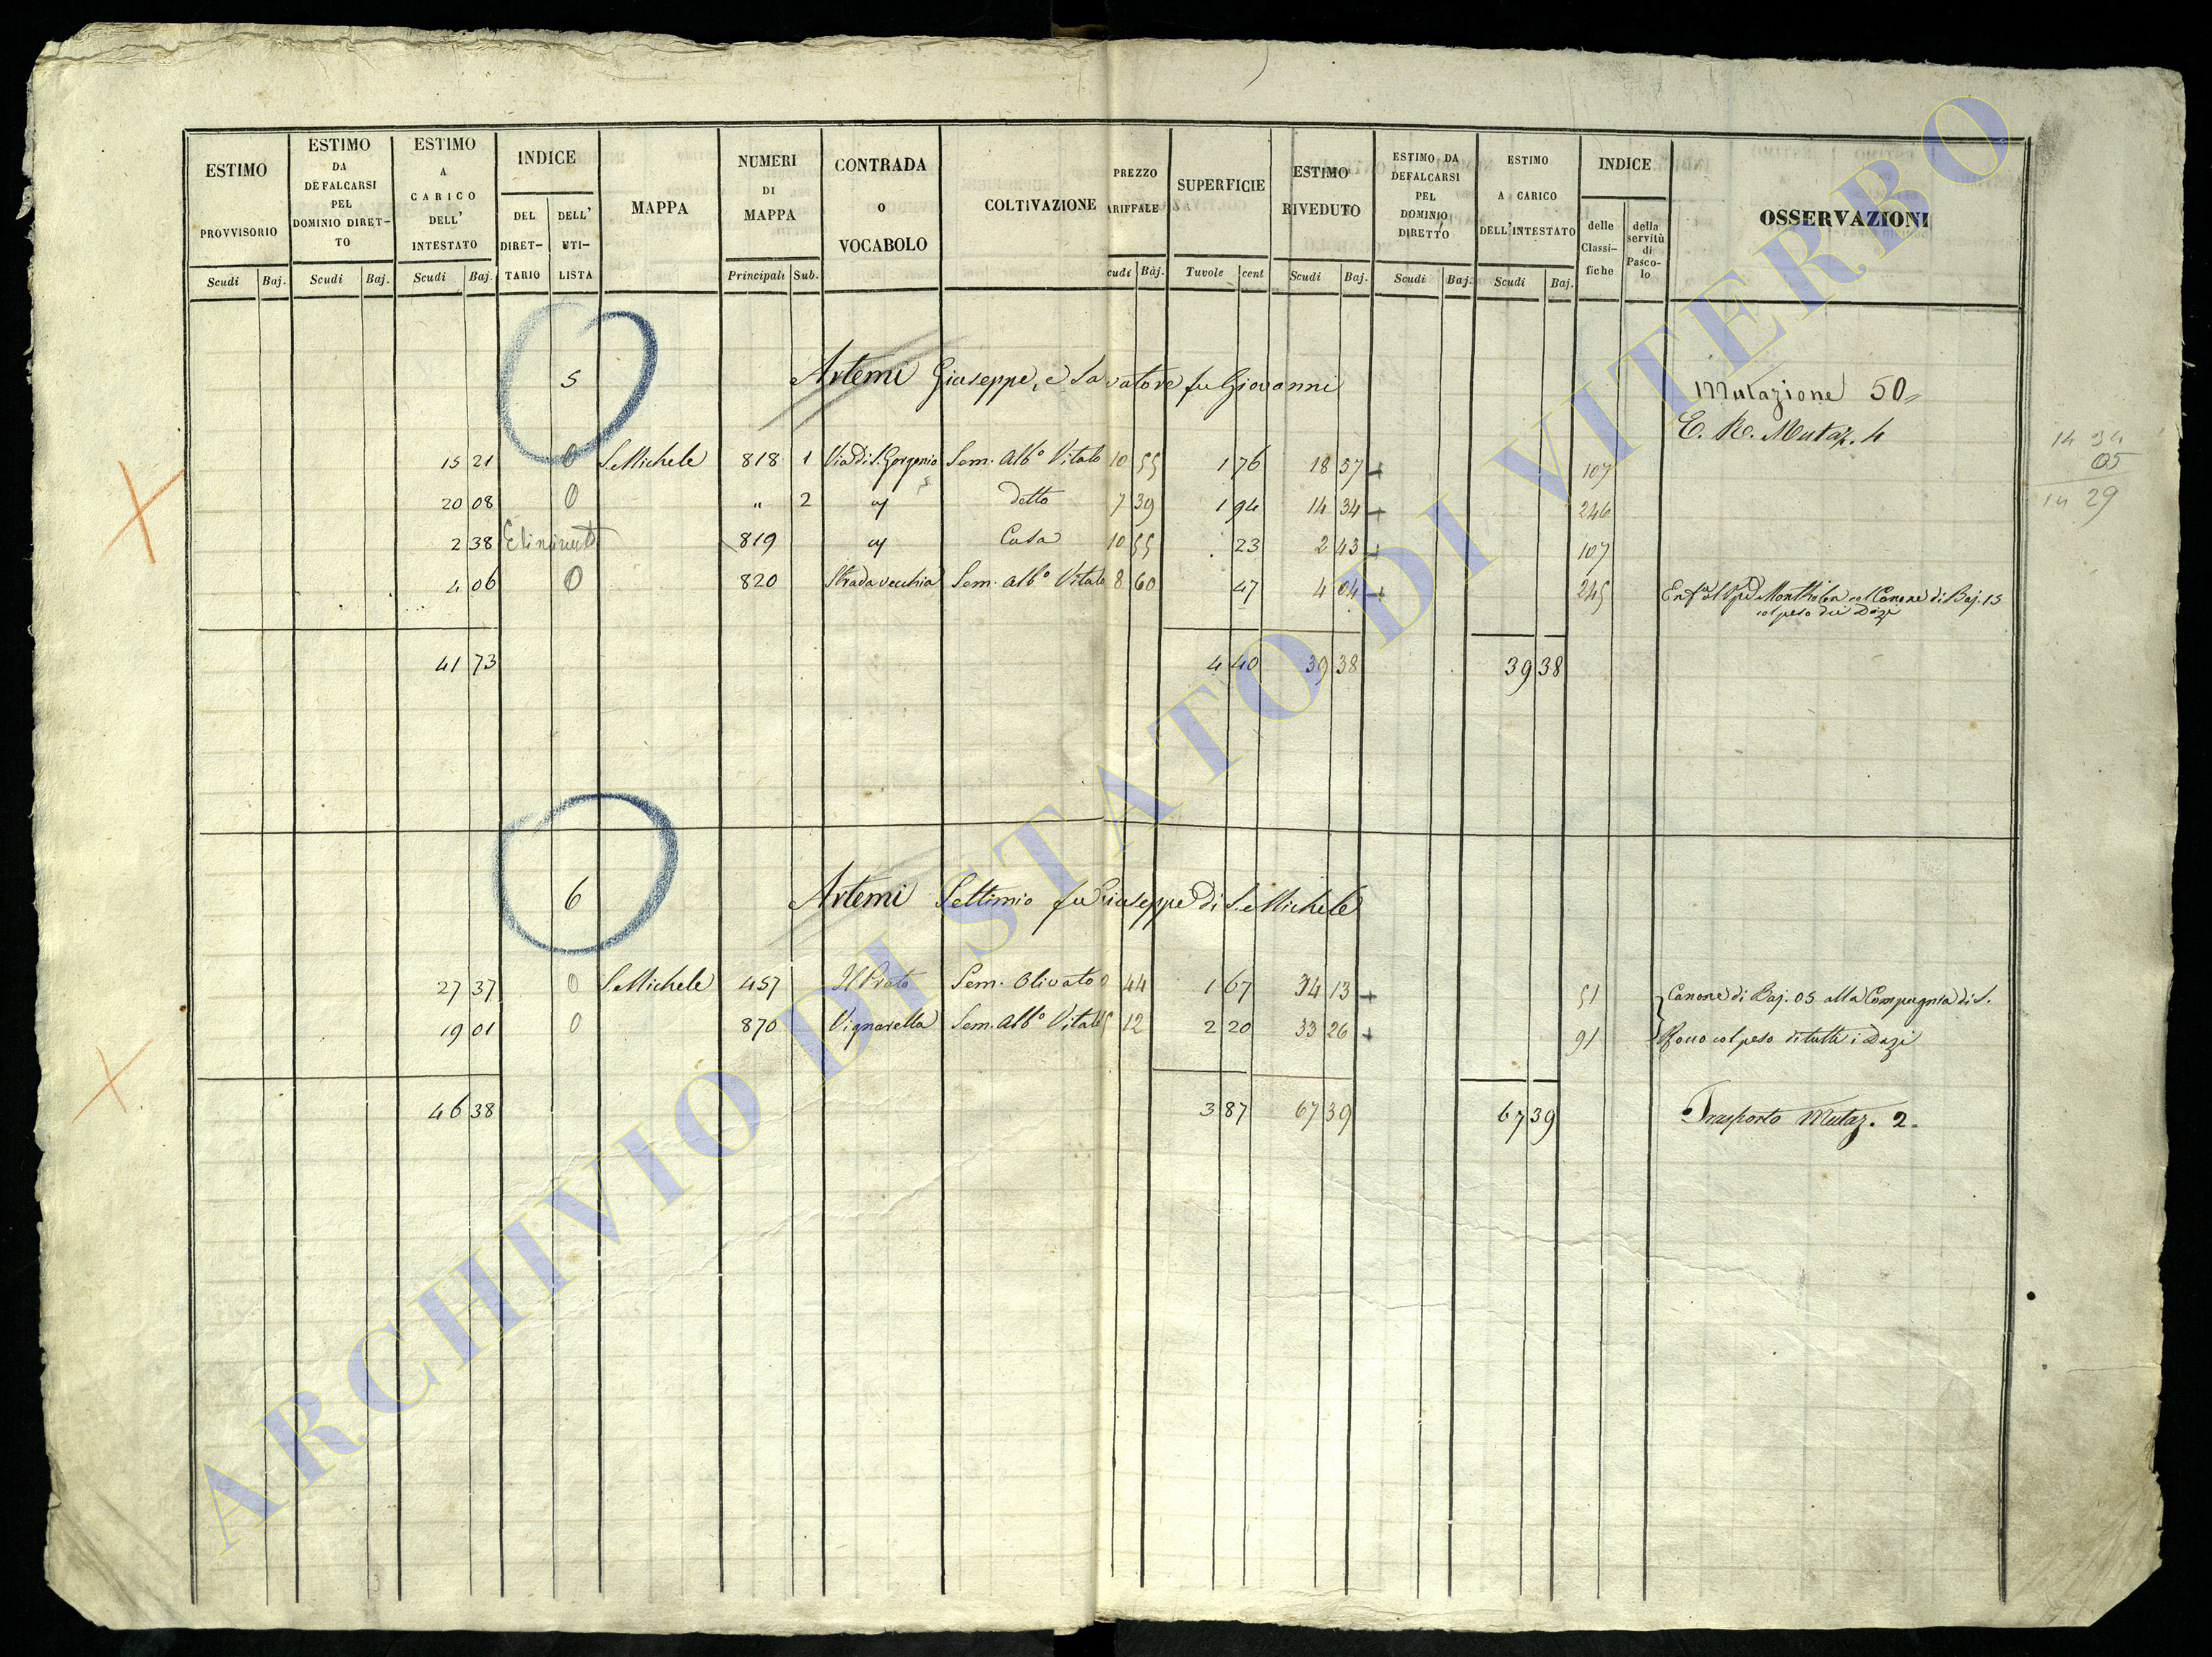 ESTIMO PROVVISORIO | ESTIMO DA DEFALCARSI PEL DOMINIO DIRETTO | ESTIMO A CARICO DELL' INTESTATO | INDICE | MAPPA | NUMERI DI MAPPA | CONTRADA O VOCABOLO | COLTIVAZIONE | PREZZO ARIFFALE | SUPERFICIE | ESTIMO RIVEDUTO | ESTIMO DA DEFALCARSI PEL DOMINIO DIRETTO | ESTIMO A CARICO DELL'INTESTATO | INDICE | OSSERVAZIONI
DEL DIRETTARIO | DELL' UTILISTA | delle Classifiche | della servitù di Pascolo
Scudi | Baj. | Scudi | Baj. | Scudi | Baj. | Principali | Sub. | cudi | Baj. | Tavole | cent | Scudi | Baj. | Scudi | Baj. | Scudi | Baj.
5 Artemi Giuseppe, e Salvatore fu Giovanni
Mutazione 50
E. R. Mutaz. 4
15 21 0 S. Michele 818 1 Via di S. Gorgonio Sem. Alb.o Vitato 10 55 1 76 18 57 107
20 08 0 " 2 " detto 7 39 1 94 14 34 246
2 38 Eliminato 819 " Casa 10 55 23 2 43 107
4 06 0 820 Strada vecchia Sem. alb.o Vitato 8 60 47 4 04 245
col Canone di Baj. 15
col peso dei Dazj
41 73 4 40 39 38 39 38
14 34
05
14 29
6 Artemi Settimio fu Giuseppe di S. Michele
27 37 0 S. Michele 457 Il Prato Sem. Olivato 44 1 67 34 13 51 Canone di Baj. 05 alla Compagnia di S.
19 01 0 870 Vignarella Sem. Alb.o Vitato 5 12 2 20 33 26 91 Rocco col peso di tutti i Dazj
46 38 3 87 67 39 67 39 Trasporto Mutaz. 2.
ARCHIVIO DI STATO DI VITERBO